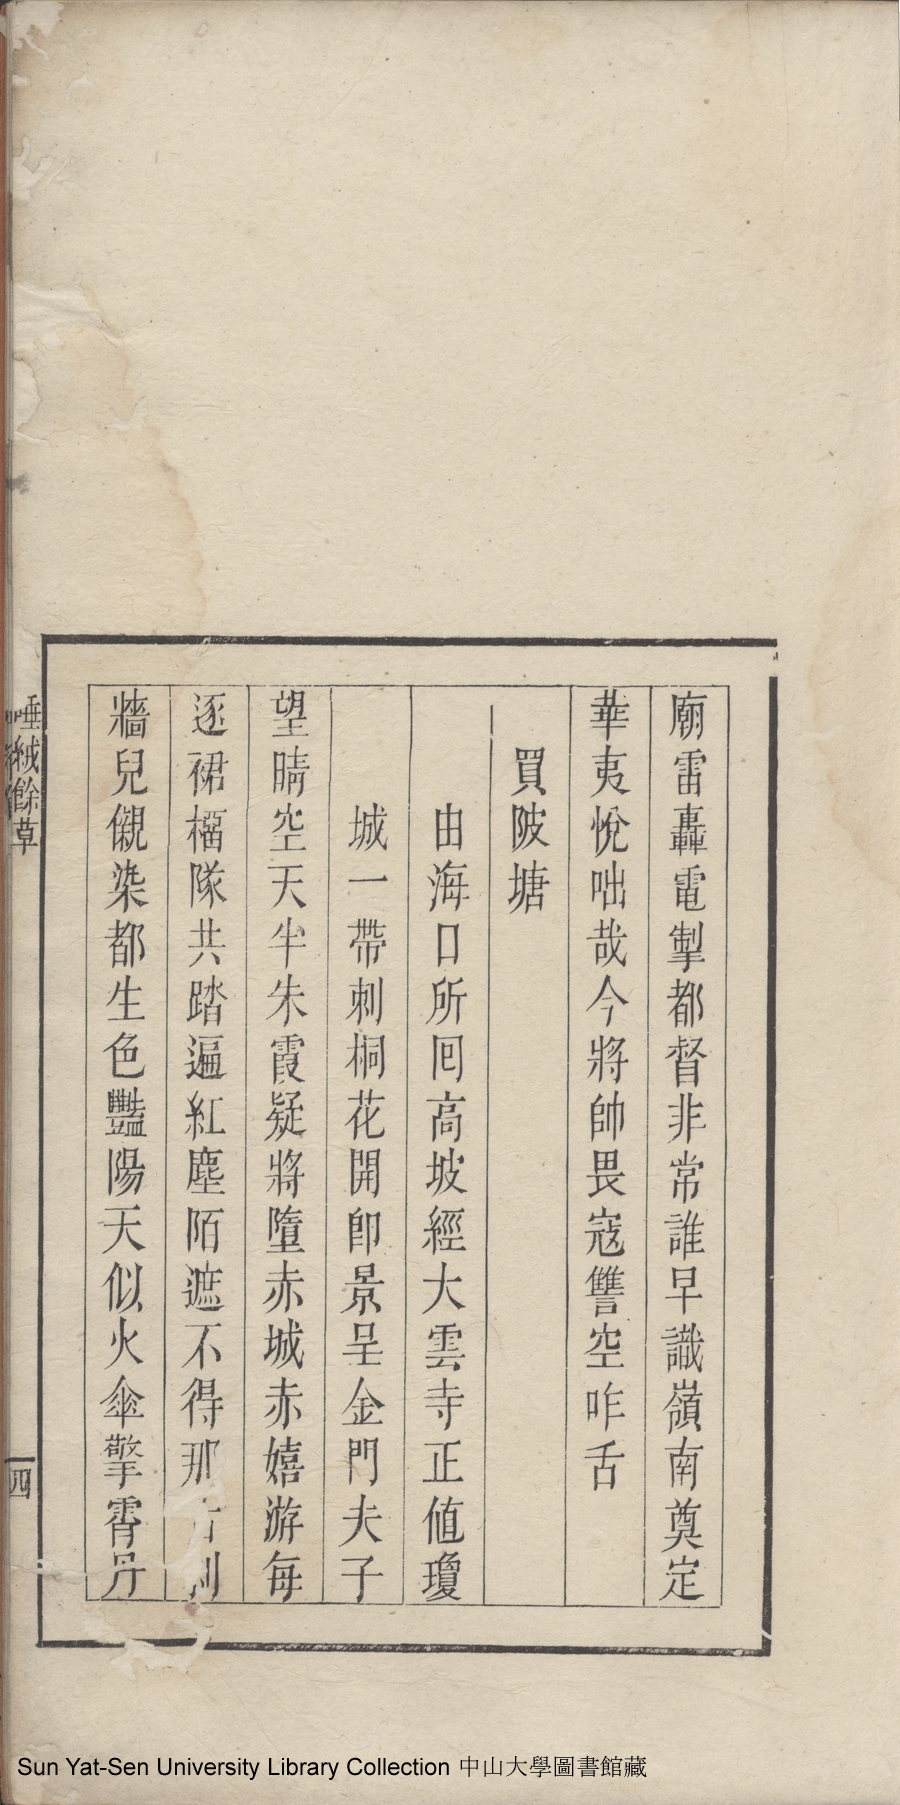 廟雷轟電掣都督非常誰早識嶺南奠定
華夷悅咄哉今將帥畏寇讐空咋舌
買陂塘
由海口所囘高坡經大雲寺正值瓊
城一帶刺桐花開卽景呈金門夫子
望晴空天半朱霞疑將墮赤城赤嬉游每
逐裙橊隊共踏遍紅塵陌遮不得那
牆兒儭染都生色豔陽天似火傘擎霄丹
唾絨餘草
四
Sun Yat-Sen University Library Collection 中山大學圖書館藏